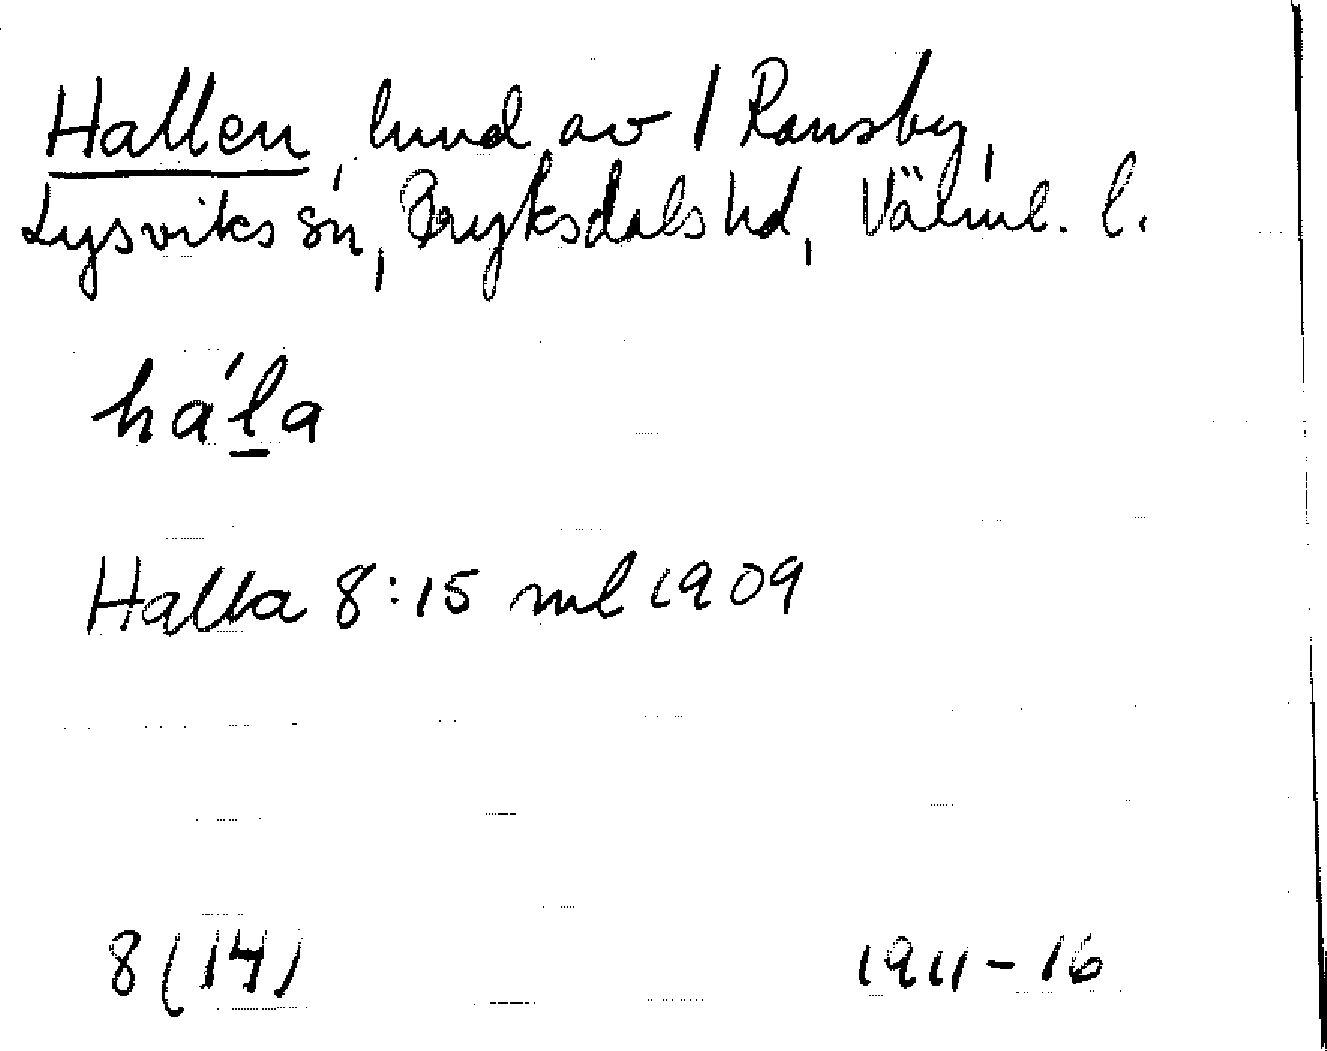 Hallen, hmd av 1 Ransby,
Lysviks sn, Fryksdals hd, Värml. l.
há'l̠a
Halla 8:15 ml 1909
8 (14) 1911-16